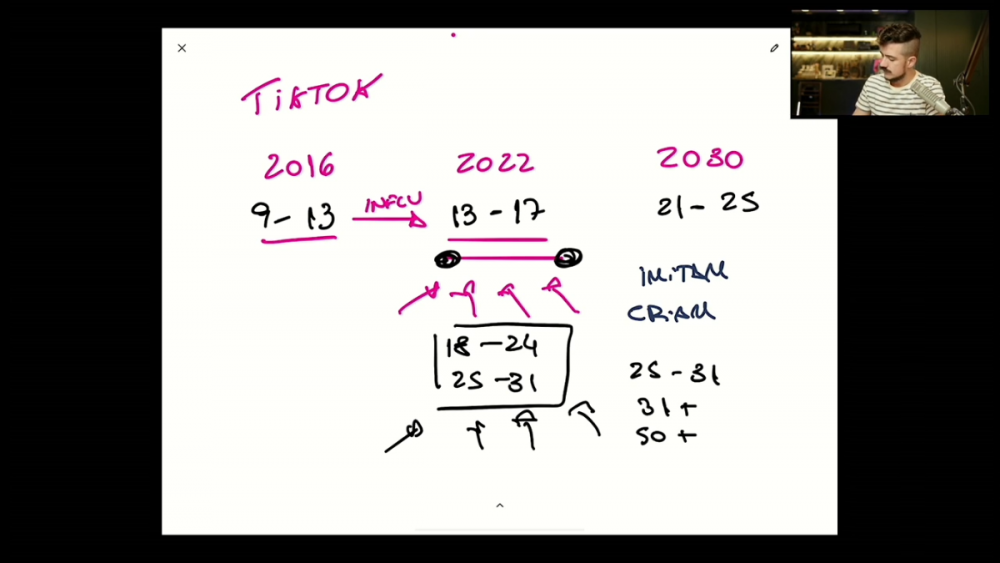 TIKTOK
2016 2022 2030
9-13 INFLU 13-17 21-25
IMITAM
CRIAM
18-24
25-31
25-31
31+
50+